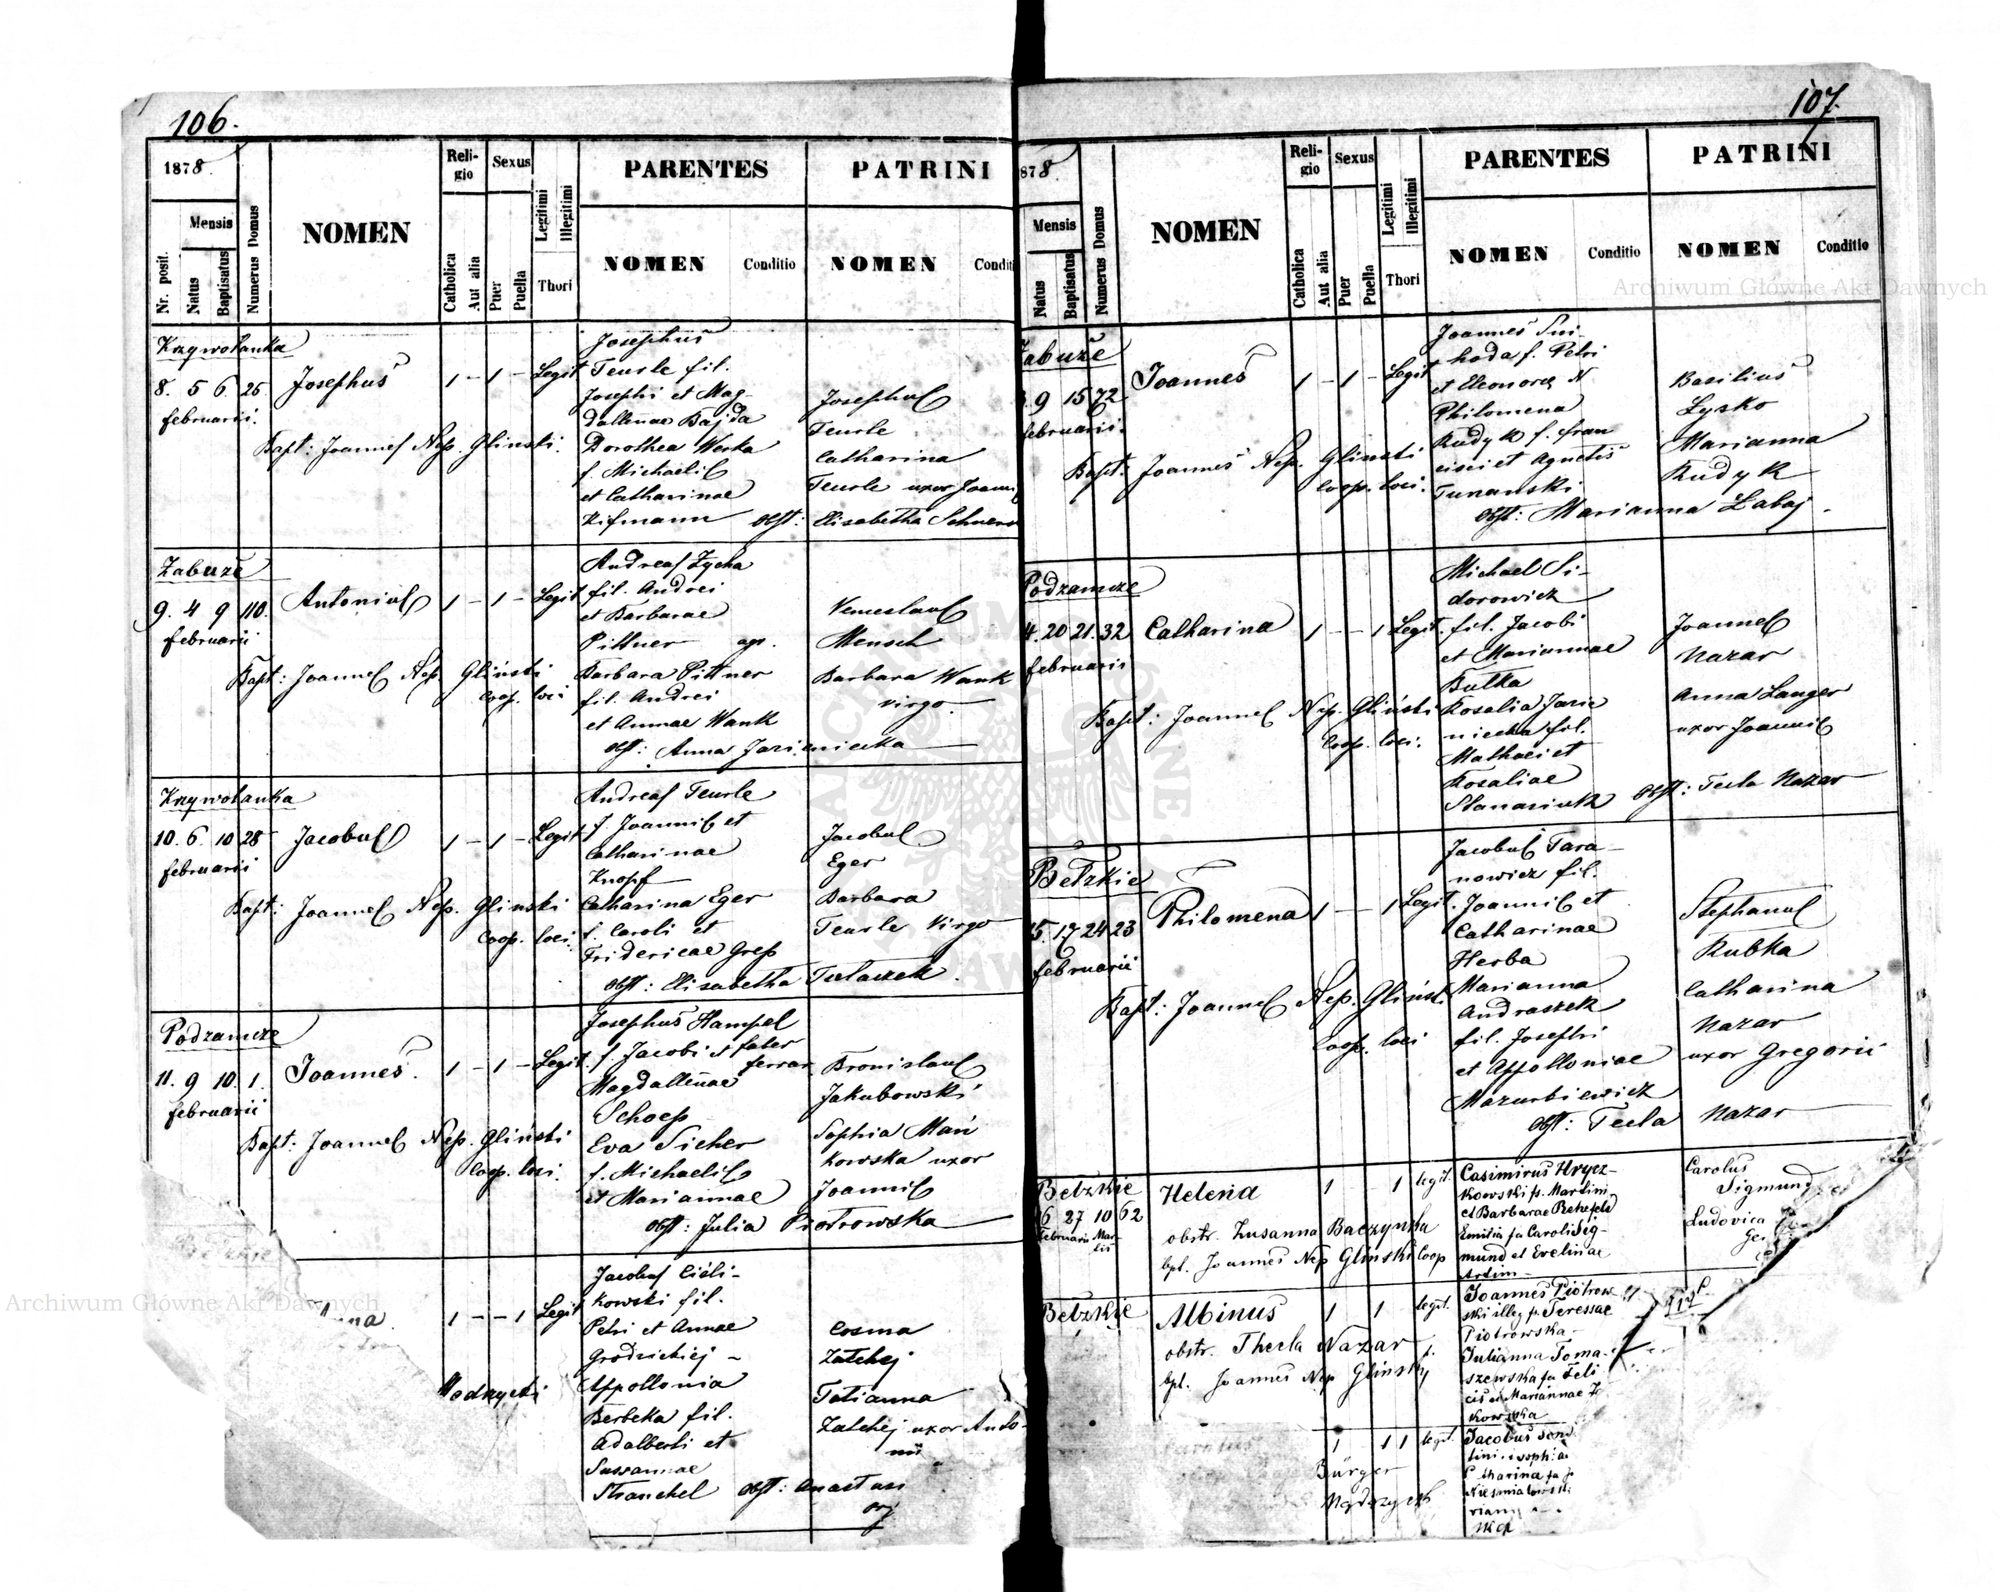 106.
1878.
Nr. posit.
Mensis
Natus
Baptisatus
Numerus Domus
NOMEN
Religio
Catholica
Aut alia
Sexus
Puer
Puella
Legitimi
Illegitimi
Thori
PARENTES
NOMEN
Conditio
PATRINI
NOMEN
Condit
Krzywolanka
8. 5 6. 25
februarii.
Josephus
1 - 1 - Legit
Bapt: Joannes Nep. Glinski.
Josephus
Teurle fil.
Josephi et Mag-
dallenae Bajda
Dorothea Werka
f. Michaelis
et Catharinae
Kifmann
Josephus
Teurle
Catharina
Teurle uxor Joanni
obst: Elisabetha Schner
Zabuże
9. 4 9 110.
februarii
Antonius
1 - 1 - Legit
Bapt: Joannes Nep. Gliński
coop. loci
Andreas Zycha
fil. Andrei
et Barbarae
Pittner agr.
Barbara Pittner
fil. Andrei
et Annae Wank
obst: Anna Jarieniecka
Venceslaus
Mensch
Barbara Wank
virgo.
Krzywolanka
10. 6. 10 28
februarii
Jacobus
1 - 1 - Legit
Bapt: Joannes Nep. Glinski
coop. loci.
Andreas Teurle
f. Joannis et
Catharinae
Knopf
Catharina Eger
f. Caroli et
Fridericae Grep
obst: Elisabetha
Jacobus
Eger
Barbara
Teurle Virgo
Podzamcze
11. 9 10. 1.
februarii
Joannes.
1 - 1 - Legit.
Bapt: Joannes Nep. Gliński
coop. loci.
Josephus Hampel
f. Jacobi et faber
Magdallenae ferrar
Schoep
Eva Sicher
f. Michaelis
et Mariannae
obst: Julia Piotrowska
Bronislaus
Jakubowski
Sophia Mań
kowska uxor
Joannis
1 - - 1 Legit
Jacobus Cieli-
kowski fil.
Petri et Annae
Grodzickiej -
Appollonia
Berbeka fil.
Adalberti et
Sussannae
Stranckel
Cosma
Zatchej
Tatianna
Zatchej uxor Anto-
nii
obst: Anastasi
107.
878.
Mensis
Natus
Baptisatus
Numerus Domus
NOMEN
Religio
Catholica
Aut alia
Sexus
Puer
Puella
Legitimi
Illegitimi
Thori
PARENTES
NOMEN
Conditio
PATRINI
NOMEN
Conditio
Zabuże
9 15 72
februarii.
Joannes
1 - 1 - Legit
Bapt: Joannes Nep. Glinski
coop. loci.
Joannes Swi-
hoda f. Petri
et Eleonorae N
Philomena
Rudyk f. fran
cisci et Agnetis
Tunanski
obst: Marianna Łabaj.
Basilius
Lysko
Marianna
Rudyk
Podzamcze
4. 20 21. 32
februarii
Catharina
1 - - 1 Legit.
Bapt: Joannes Nep. Gliński
coop. loci.
Michael Si-
dorowicz
fil. Jacobi
et Mariannae
Butka
Rosalia Jarie
niecka fil.
Mathaei et
Rosaliae
Stanasiuk
Joannes
Nazar
Anna Langer
uxor Joannis
obst: Tecla Nazar
Bełzkie
15. 17 24 23
februarii
Philomena
1 - - 1 Legit.
Bapt: Joannes Nep. Glińst.
coop. loci
Jacobus Tara-
nowicz fil.
Joannis et
Catharinae
Herba
Marianna
Andraszek
fil. Josephi
et Appolloniae
Mazurkiewicz
obst: Tecla Nazar
Stephanus
Kubka
Catharina
Nazar
uxor Gregorii
Bełzkie
6 27 10 62
Februarii Mar-
tis
Helena
1 - 1 legit.
obstr. Zusanna Baczyńska
bpt. Joannes Nep Glinski coop
Casimirus Hrycz-
kowski fs. Martini
et Barbarae Rehefeld
Emilia fa Caroli Sig-
mund et Evelinae
Artim
Carolus
Sigmund
Ludovica
Bełzkie
Albinus
1 1 legit.
obstr. Thecla Nazar
bpt. Joannes Nep Glinsky
Joannes Piotrow
ski illeg fs. Teressae
Piotrowska
Julianna Toma-
szewska fa Feli
cis et Mariannae
kowska
Carolus
1 - 1 1 legit.
Bürger
Jacobus
Catharina fa
Archiwum Główne Akt Dawnych
Archiwum Główne Akt Dawnych
ARCHIWUM GŁÓWNE AKT DAWNYCH